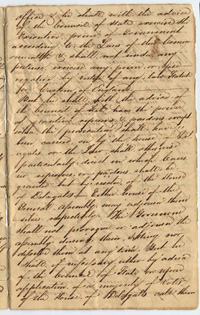 office & he shall with the advice
of the Council of State exercise the
Executive powers of Government
according to the Laws of this Common
wealth & shall not under any
pretence exercise any power or prero
gative by virtue of any Law Statute
or Custom of England
But he shall with the advice of
the Council of State have the power
of granting reprieves & pardons except
when the prosecution shall have
been carried on by the house of
or the Law shall otherwise
particularly direct in which Cases
no reprieve or pardon shall be
granted but by resolve of the House
of Delegates Either House of the
General Assembly may adjourn them
selves respectively The Governor
shall not prorogue or adjourn the
assembly during their sitting nor
dissolve them at any time But he
shall if necessary either by advice
of the Council of State or upon
application of a majority of
of the House of Delegates call them